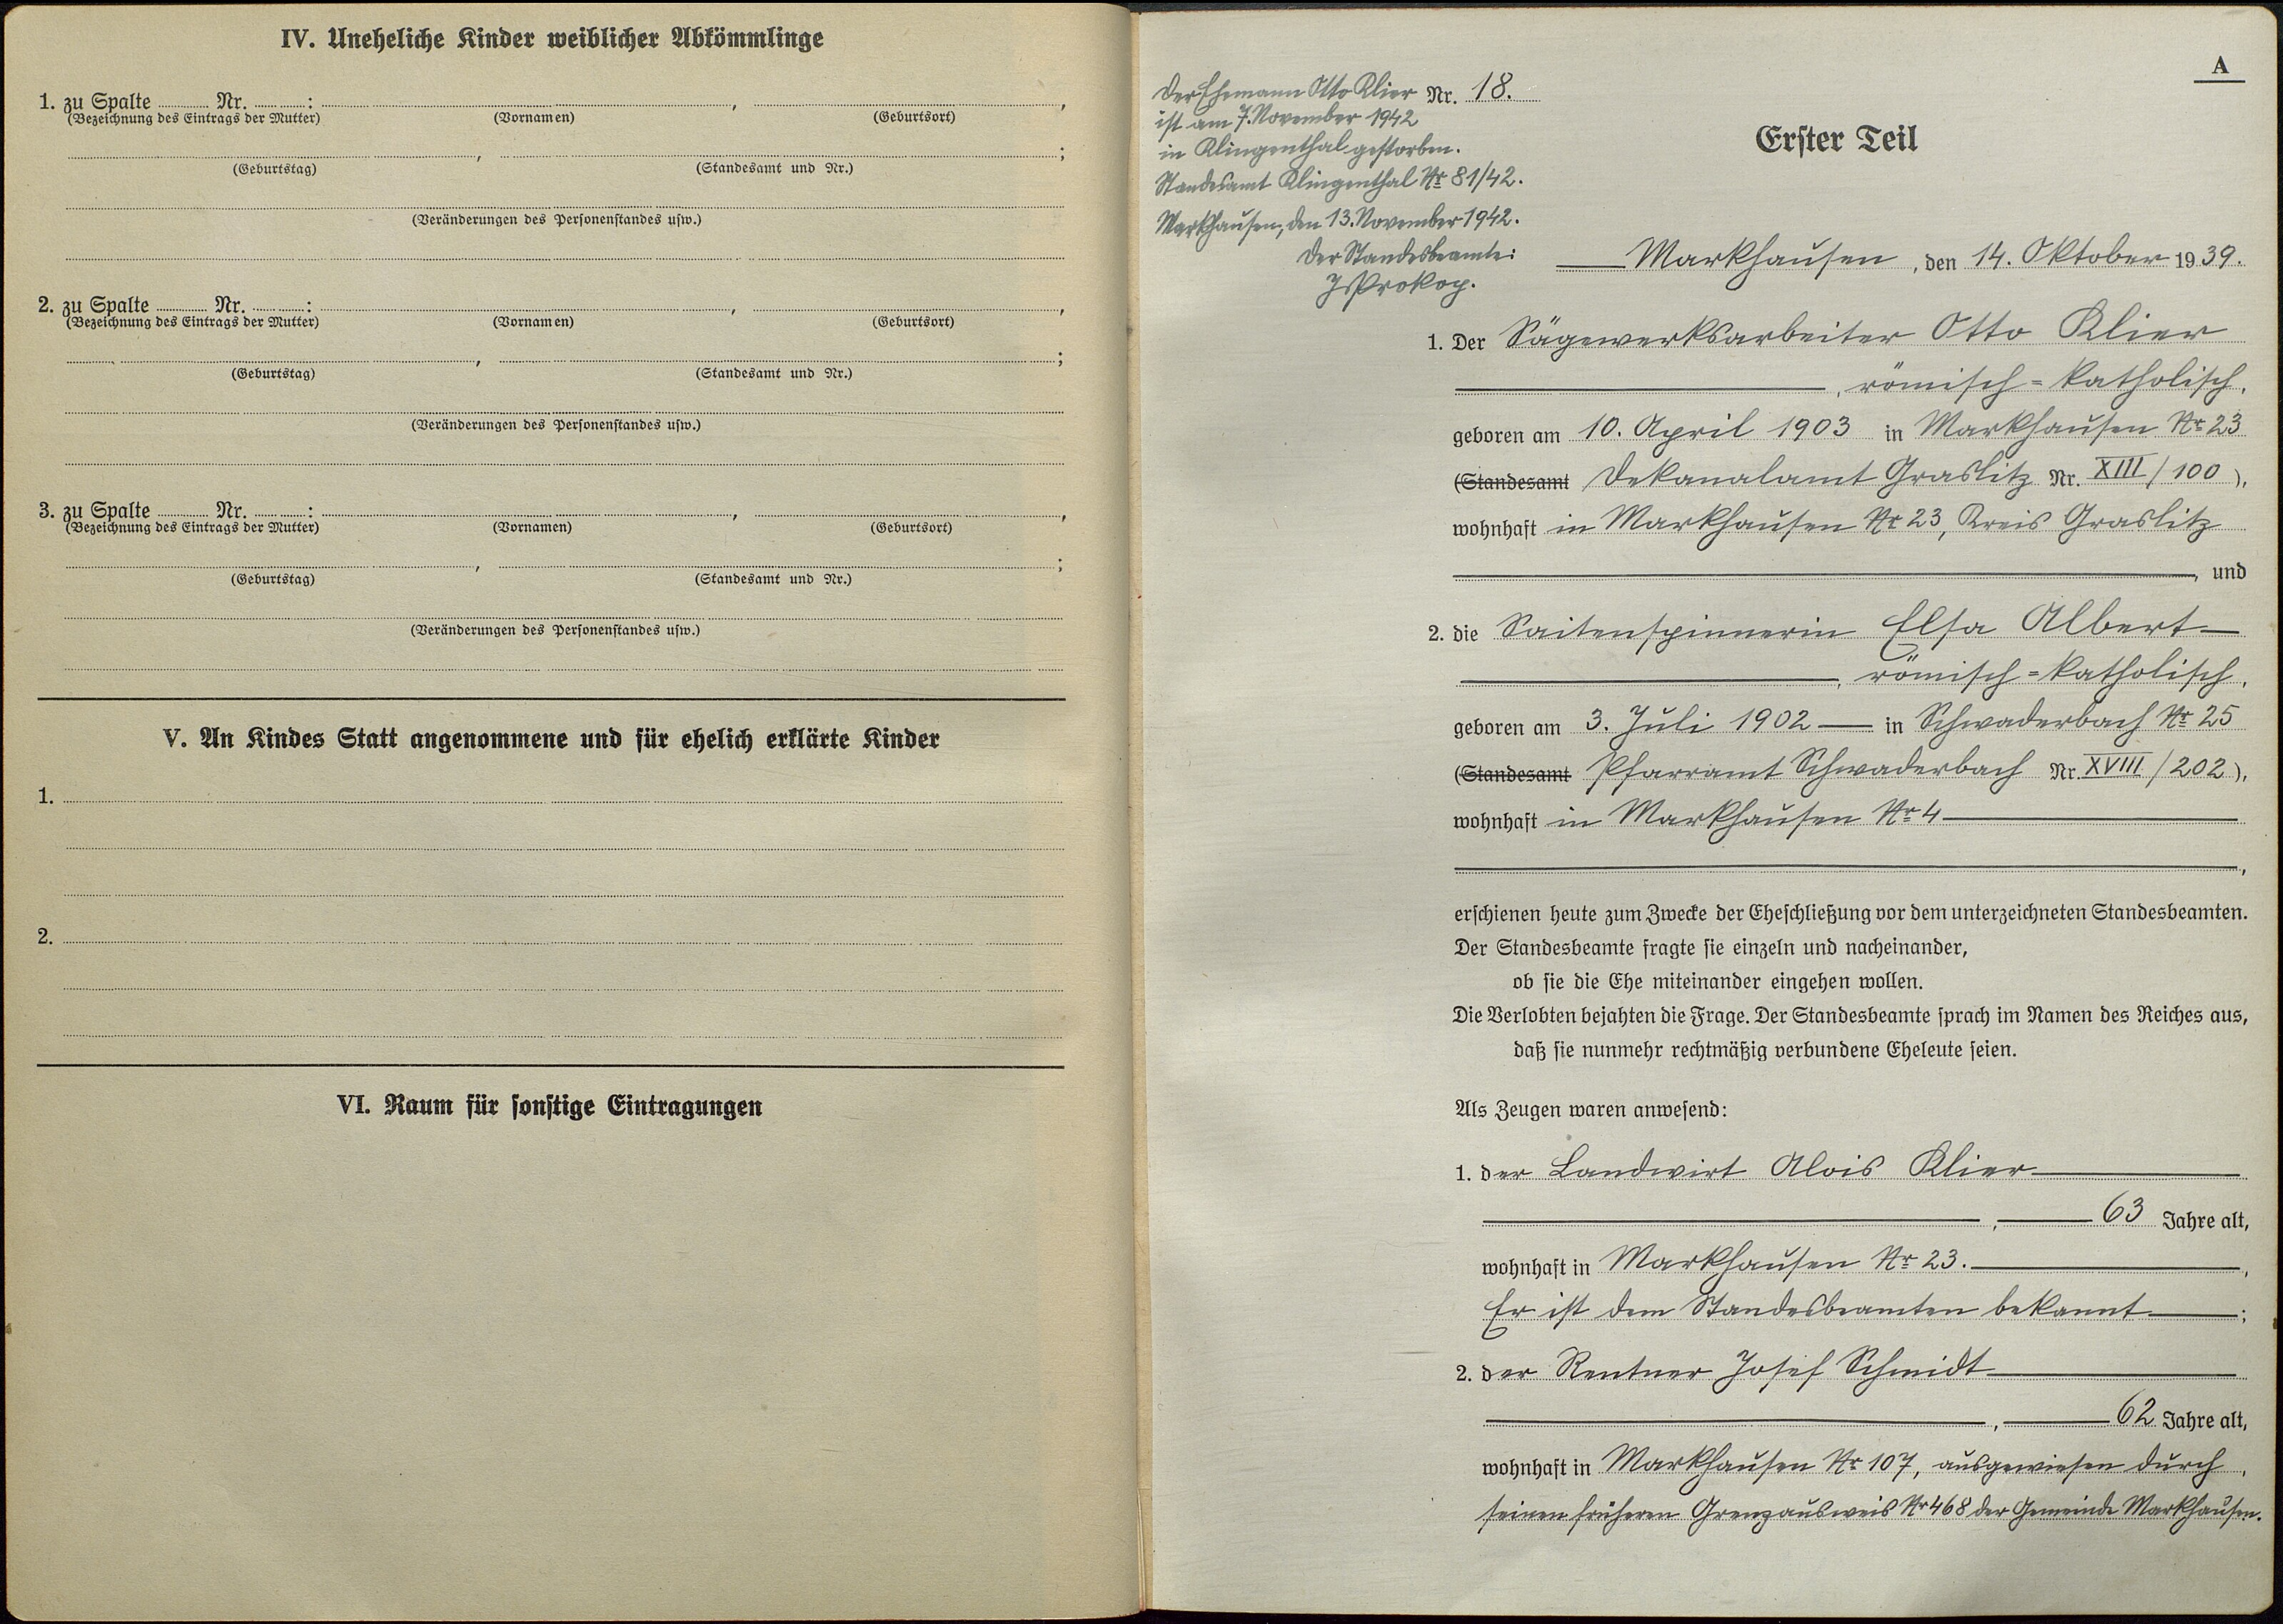 IV. Uneheliche Kinder weiblicher Abkömmlinge
1. zu Spalte ........ Nr. ........: ........, ........,
(Bezeichnung des Eintrags der Mutter) (Vornamen) (Geburtsort)
........, ........;
(Geburtstag) (Standesamt und Nr.)
(Veränderungen des Personenstandes usw.)
2. zu Spalte ........ Nr. ........: ........, ........,
(Bezeichnung des Eintrags der Mutter) (Vornamen) (Geburtsort)
........, ........;
(Geburtstag) (Standesamt und Nr.)
(Veränderungen des Personenstandes usw.)
3. zu Spalte ........ Nr. ........: ........, ........,
(Bezeichnung des Eintrags der Mutter) (Vornamen) (Geburtsort)
........, ........;
(Geburtstag) (Standesamt und Nr.)
(Veränderungen des Personenstandes usw.)
V. An Kindes Statt angenommene und für ehelich erklärte Kinder
1.
2.
VI. Raum für sonstige Eintragungen
A
Der Ehemann Otto Klier
ist am 7. November 1942
in Klingenthal gestorben.
Standesamt Klingenthal Nr 81/42.
Markhausen, den 13. November 1942.
Der Standesbeamte:
J Prokop.
Nr. 18.
Erster Teil
Markhausen, den 14. Oktober 1939.
1. Der Sägewerksarbeiter Otto Klier
, römisch=katholisch,
geboren am 10. April 1903 in Markhausen Nr 23
(Standesamt Dekanalamt Graslitz Nr. XIII/100),
wohnhaft in Markhausen Nr 23, Kreis Graslitz
, und
2. die Saitenspinnerin Elsa Albert
, römisch=katholisch,
geboren am 3. Juli 1902 in Schwaderbach Nr 25
(Standesamt Pfarramt Schwaderbach Nr. XVIII/202),
wohnhaft in Markhausen Nr 4
,
erschienen heute zum Zwecke der Eheschließung vor dem unterzeichneten Standesbeamten.
Der Standesbeamte fragte sie einzeln und nacheinander,
ob sie die Ehe miteinander eingehen wollen.
Die Verlobten bejahten die Frage. Der Standesbeamte sprach im Namen des Reiches aus,
daß sie nunmehr rechtmäßig verbundene Eheleute seien.
Als Zeugen waren anwesend:
1. der Landwirt Alois Klier
, 63 Jahre alt,
wohnhaft in Markhausen Nr 23.,
Er ist dem Standesbeamten bekannt;
2. der Rentner Josef Schmidt
, 62 Jahre alt,
wohnhaft in Markhausen Nr 107, ausgewiesen durch,
seinen früheren Grenzausweis Nr 468 der Gemeinde Markhausen.